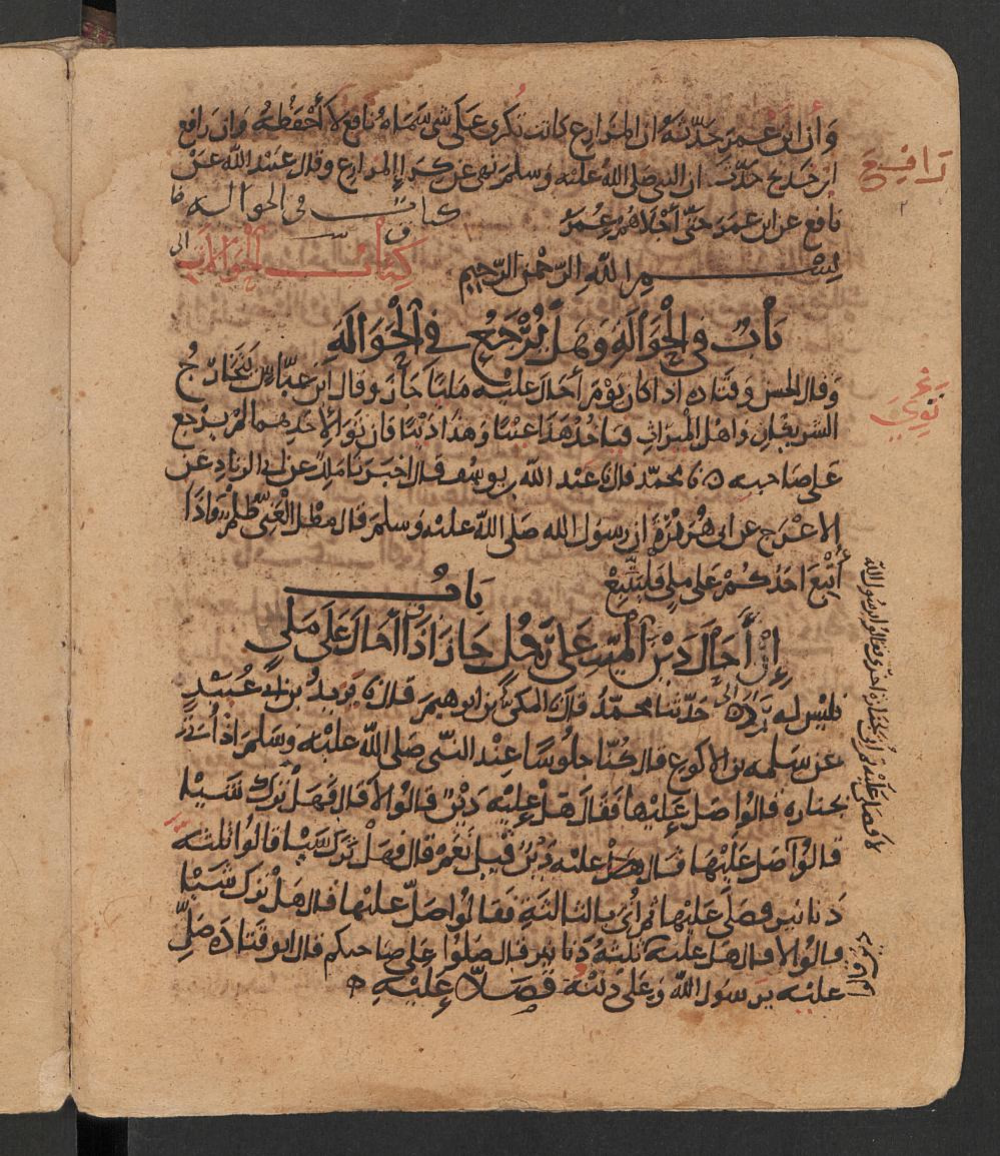 وأن ابن عمر حدثه أن المزارع كانت تكرى على شي سماه نافع لا أحفظه وان رافع
ابن خديج حدث ان النبي صلى الله عليه وسلم نهى عن كرا المزارع وقال عبيد الله عن
نافع عن ابن عمر حتى أجلاهم عمر
كتاب في الحواله
كتاب الحوالات
بسم الله الرحمن الرحيم
باب في الحوالة وهل يرجع في الحوالة
وقال الحسن وقتاده اذا كان يوم أحال عليه مليا جاز وقال ابن عباس يتخارج
الشريكان واهل الميراث فياخذ هذا عينا وهذا دينا فان توي لاحدهما لم يرجع
على صاحبه ه نا محمد قال نا عبد الله بن يوسف قال اخبرنا ملك عن ابي الزناد عن
الاعرج عن ابي هريرة ان رسول الله صلى الله عليه وسلم قال مطل الغني ظلم واذا
أتبع احدكم على ملي فليتبع
باب
إن أحال دين الميت على رجل جاز وإذا أحال على ملي
فليس له رد حدثنا محمد قال نا المكي بن ابرهيم قال نا يزيد بن ابي عبيد
عن سلمه بن الاكوع قال كنا جلوسا عند النبي صلى الله عليه وسلم اذ أتي
بجنازه قالوا صل عليها فقال هل عليه دين قالوا لا قال فهل ترك شيا
قالوا صل عليها قال هل عليه دين قيل نعم قال فهل ترك شيا قالوا ثلثة
دنانير فصلى عليها ثم أتي بالثالثة فقالوا صل عليها قال هل ترك شيا
قالوا لا قال هل عليه ثلثة دنانير قال صلوا على صاحبكم قال ابو قتاده صل
عليه يرسول الله وعلي دينه فصلى عليه
رافع
توي
لا فصلى عليه ثم أتي بجنازة اخرى فقالوا يرسول الله